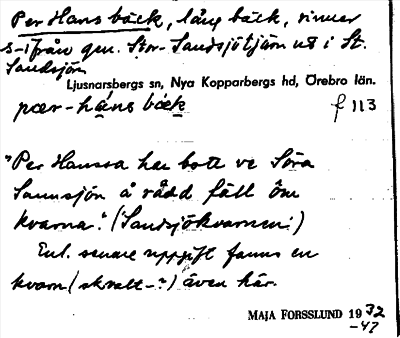 Per Hans bäck, lång bäck, rinner
s-ifrån gm. Stor-Sandsjötjärn ut i St.
Sandsjön
Ljusnarsbergs sn, Nya Kopparbergs hd, Örebro län.
pær-hans bäck f 113
"Per Hanssa har bott ve Söra
Sannsjön å rådd fäll öm
kvarna." (Sandsjökvarnen!)
Enl. senare uppgift fanns en
kvarn (skvalt-?) även här.
MAJA FORSSLUND 1932
-47